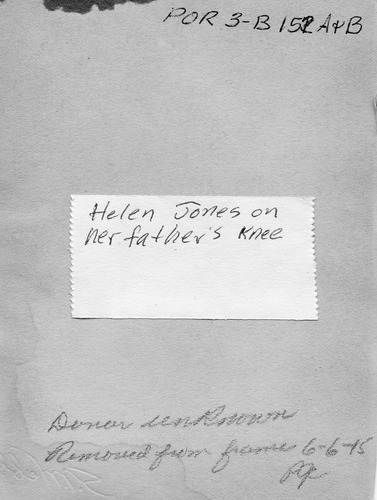 POR 3-B 152 A&B
Helen Jones on
her father's knee
Donor unknown
Removed from frame 6-6-75